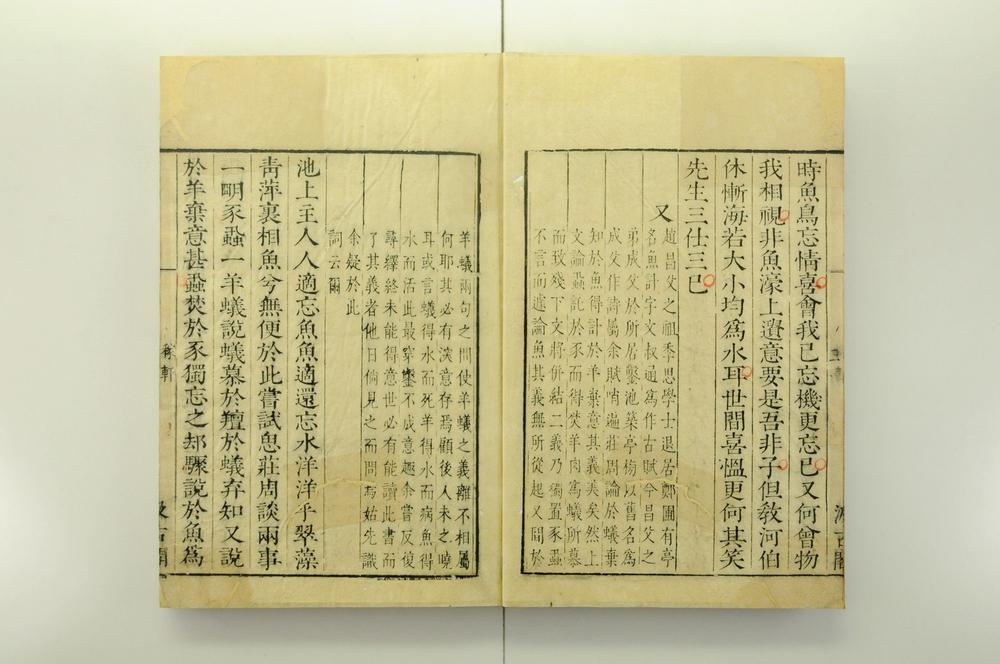 時魚鳥忘情喜會我已忘機更忘已又何曾物
我相視非魚濠上遺意要是吾非子但教河伯
休慚海若大小均爲水耳世間喜慍更何其笑
先生三仕三已
又
趙昌父之祖季思學士退居鄭圃有亭
名魚計宇文叔通爲作古賦今昌父之
弟成父於所居鑿池築亭榜以舊名爲
成父作詩屬余賦哨遍莊周論於蟻棄
知於魚得計於羊棄意其義美矣然上
文論蝨託於豕而得焚羊肉爲蟻所慕
而致殘下文將併結二義乃獨置豕蝨
不言而遽論魚其義無所從起又間於
羊蟻兩句之間使羊蟻之義離不相屬
何耶其必有深意存焉顧後人未之曉
耳或言蟻得水而死羊得水而病魚得
水而活此最穿鑿不成意趣余嘗反復
尋繹終未能得意世必有能讀此書而
了其義者他日倘見之而問焉姑先識
余疑於此
詞云爾
池上主人人適忘魚魚適還忘水洋洋乎翠藻
青萍裏相魚兮無便於此嘗試思莊周談兩事
一明豕蝨一羊蟻說蟻慕於羶於蟻弃知又說
於羊棄意甚蝨焚於豕獨忘之却驟說於魚爲